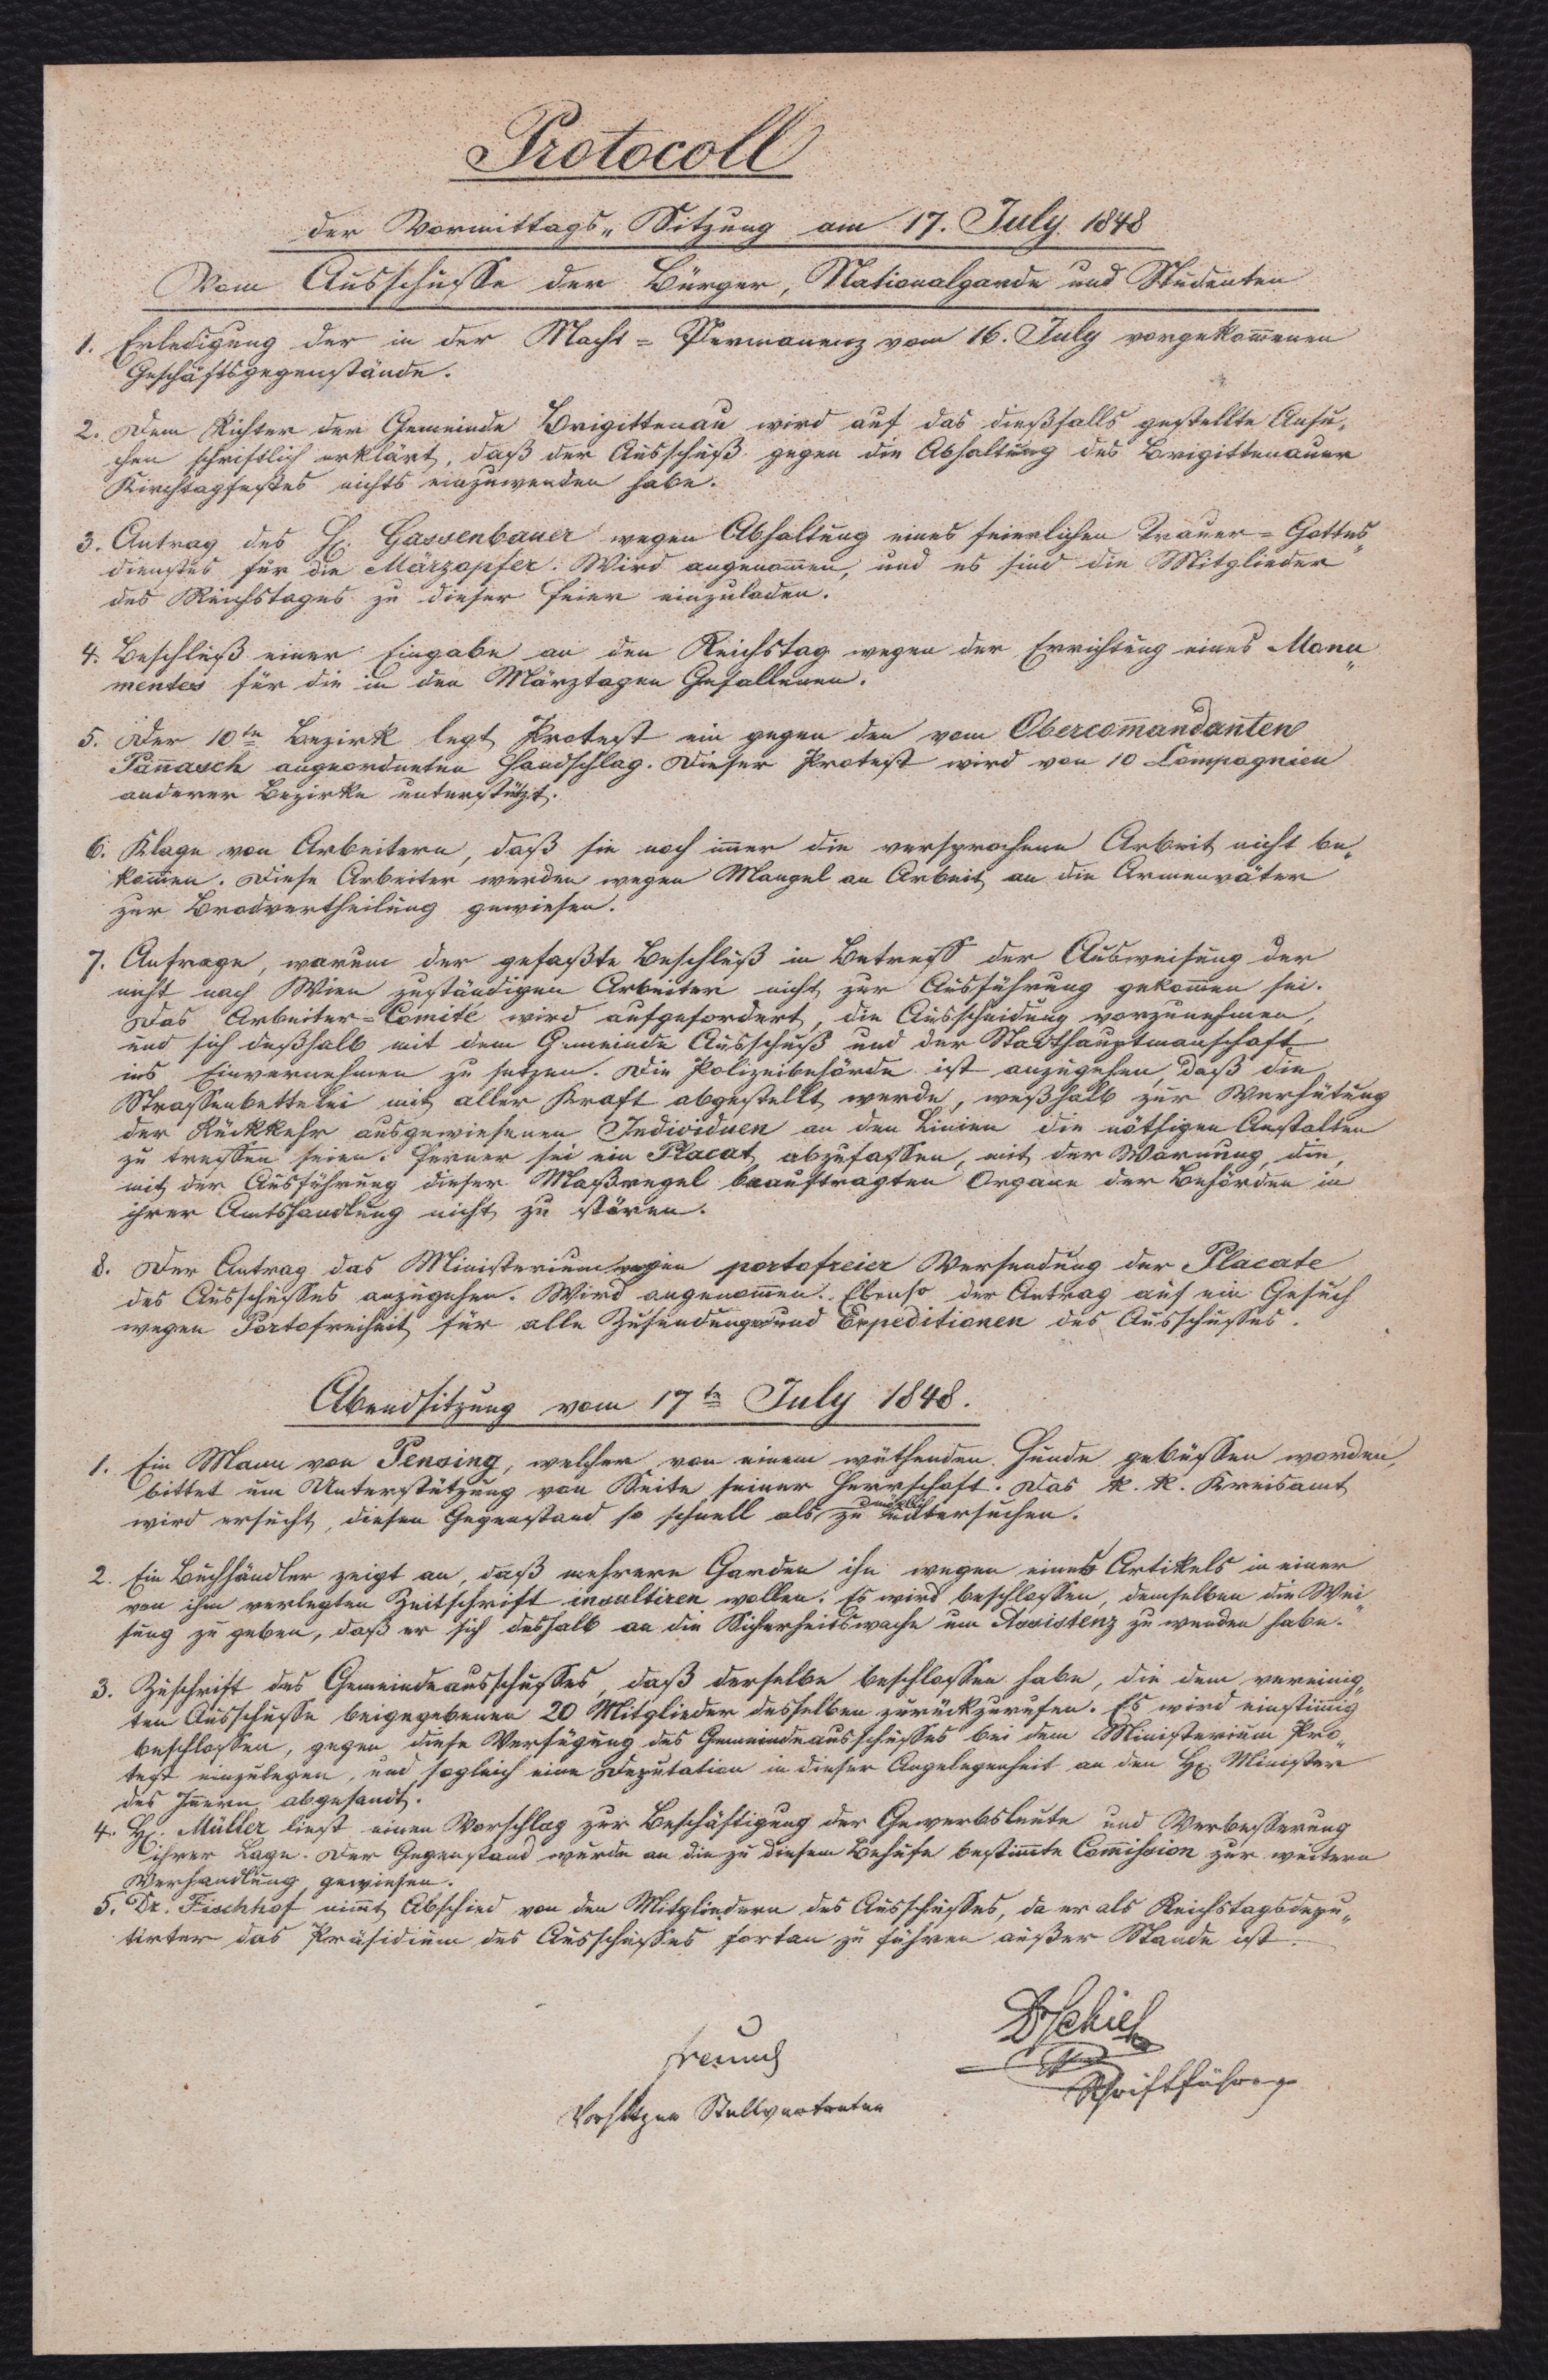 Protocoll
der Vormittags„Sitzung am 17. July 1848
Vom Ausschusse der Bürger, Nationalgarde und Studenten
1. Erledigung der in der Nacht=Permanenz vom 16. July vorgekom̄enen
Geschäftsgegenstände.
2. Dem Richter der Gemeinde Brigittenau wird auf das dießfalls gestellte Ansu„
chen schriftlich erklärt, daß der Ausschuß gegen die Abhaltung des Brigittenauer
Kirchtagfestes nichts einzuwenden habe.
3. Antrag des H. Gassenbauer wegen Abhaltung eines feierlichen Trauer=Gottes„
dienstes für die Märzopfer. Wird angenom̄en, und es sind die Mitglieder
des Reichstages zu dieser Feier einzuladen.
4. Beschluß einer Eingabe an den Reichstag wegen der Errichtung eines Monu„
mentes für die in den Märztagen Gefallenen.
5. Der 10te Bezirk legt Protest ein gegen den vom Obercom̄andanten
Pan̄asch angeordneten Handschlag. Dieser Protest wird von 10 Compagnien
anderer Bezirke unterstützt.
6. Klage von Arbeitern, daß sie noch im̄er die versprochene Arbeit nicht be„
kom̄en. Diese Arbeiter werden wegen Mangel an Arbeit an die Armenväter
zur Brodvertheilung gewiesen.
7. Anfrage, warum der gefaßte Beschluß in Betreff der Ausweisung der
nicht nach Wien zuständigen Arbeiter nicht zur Ausführung gekom̄en sei.
Das Arbeiter=Comité wird aufgefordert, die Ausscheidung vorzunehmen,
und sich deßhalb mit dem Gemeinde Ausschuß und der Stadthauptmanschaft
ins Einvernehmen zu setzen. Die Polizeibehörde ist anzugehen, daß die
Strassenbettelei mit aller Kraft abgestellt werde, weßhalb zur Verhütung
der Rückkehr ausgewiesenen Individuen an den Linien die nöthigen Anstalten
zu treffen seien. Ferner sei ein Placat abzufassen, mit der Warnung, die,
mit der Ausführung dieser Maßregel beauftragten Organe der Behörden in
ihrer Amtshandlung nicht zu stören.
8. Der Antrag das Ministerium wegen portofreier Versendung der Placate
des Ausschusses anzugehen. Wird angenom̄en. Ebenso der Antrag auf ein Gesuch
wegen Portofreiheit für alle Zusendungen und Expeditionen des Ausschusses.
Abendsitzung vom 17te July 1848.
1. Ein Mann von Pensing, welcher von einem wüthenden Hunde gebissen worden,
bittet um Unterstützung von Seite seiner Herrschaft. Das k. k. Kreisamt
wird ersucht, diesen Gegenstand so schnell als möglich zu untersuchen.
2. Ein Buchhändler zeigt an, daß mehrere Garden ihn wegen eines Artikels in einer
von ihm verlegten Zeitschrift insultiren wollen. Es wird beschlossen, demselben die Wei„
sung zu geben, daß er sich deshalb an die Sicherheitswache um Assistenz zu wenden habe.
3. Zuschrift des Gemeindeausschusses, daß derselbe beschlossen habe, die dem vereinig„
ten Ausschusse beigegebenen 20 Mitglieder desselben zurückzurufen. Es wird einstim̄ig
beschlossen, gegen diese Verfügung des Gemeindeausschusses bei dem Ministerium Pro„
test einzulegen, und sogleich eine Deputation in dieser Angelegenheit an den H. Minister
des In̄ern abgesandt.
4. H. Müller liest einen Vorschlag zur Beschäftigung der Gewerbsleute und Verbesserung
ihrer Lage. Der Gegenstand wurde an die zu diesem Behufe bestim̄te Com̄ission zur weitern
Verhandlung gewiesen.
5. Dr. Fischhof nim̄t Abschied von den Mitgliedern des Ausschusses, da er als Reichstagsdepu„
tirter das Präsidium des Ausschusses fortan zu führen außer Stande ist.
Freund
Vorsitzer Stellvertreter
Dr Schiel
Schriftführer